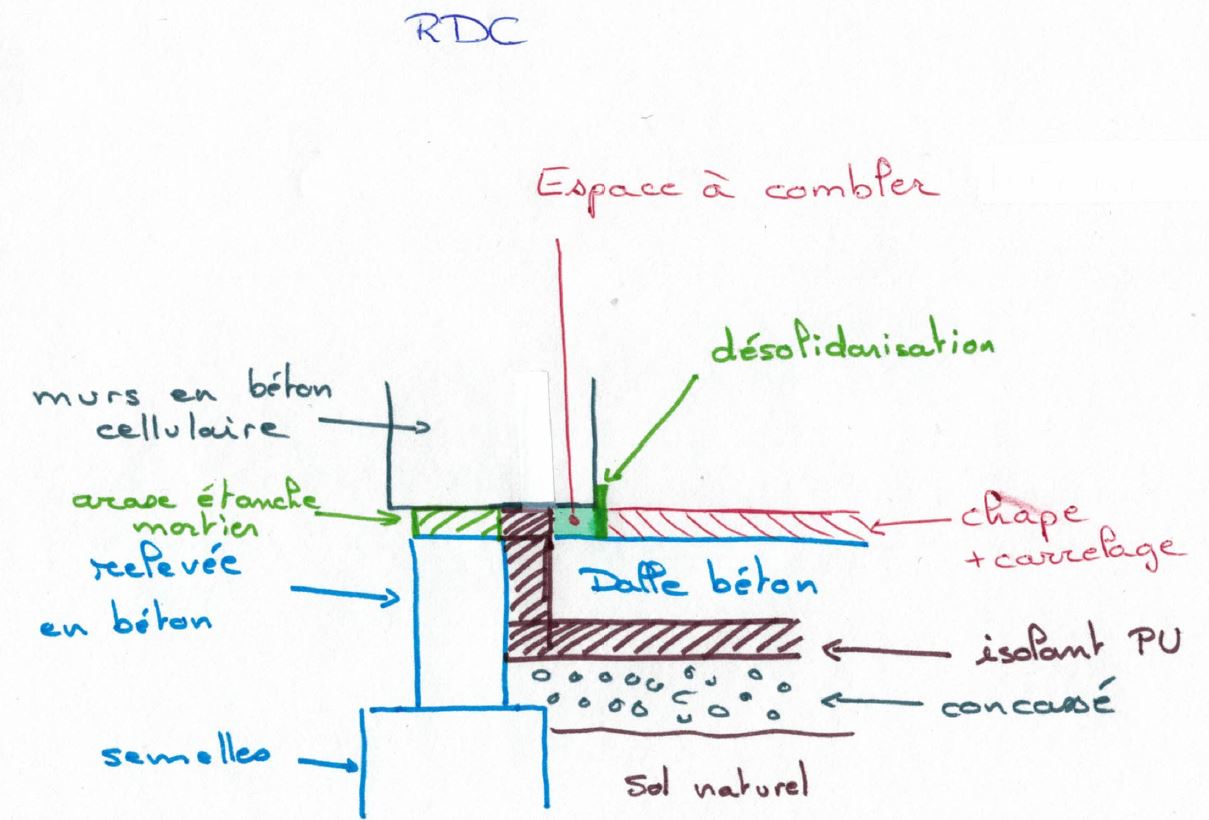 RDC
Espace à combler
désolidarisation
murs en béton
cellulaire
arase étanche
mortier
chape
+ carrelage
relevée
en béton
Dalle béton
isolant PU
concassé
semelles
Sol naturel